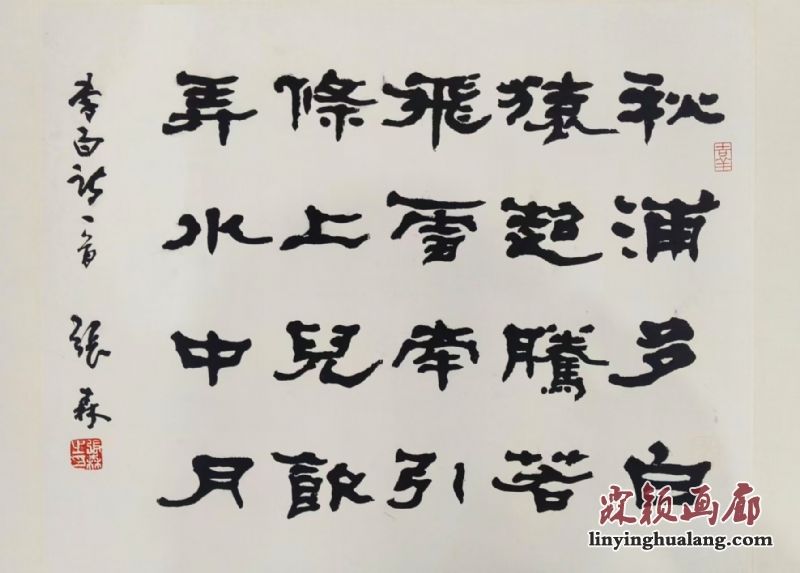 秋浦多白
猿超騰若
飛雪牽引
條上兒飲
弄水中月
李白詩一首 張森
張森之印
吉羊
霖颖画廊
linyinghualang.com